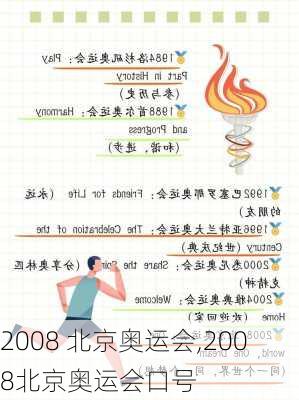 1984洛杉矶奥运会：Play
Part in History
（参与历史）
1988首尔奥运会：Harmony
and Progress
（和谐、进步）
1992巴塞罗那奥运会：Friends for Life （永远
的朋友）
1996亚特兰大奥运会：The Celebration of the
Century（世纪庆典）
2000悉尼奥运会：Share the Spirit（分享奥林匹
克精神）
2004雅典奥运会：Welcome
Home（欢迎回家）
2008 北京奥运会,200
8北京奥运会口号
同一个世界，同一个